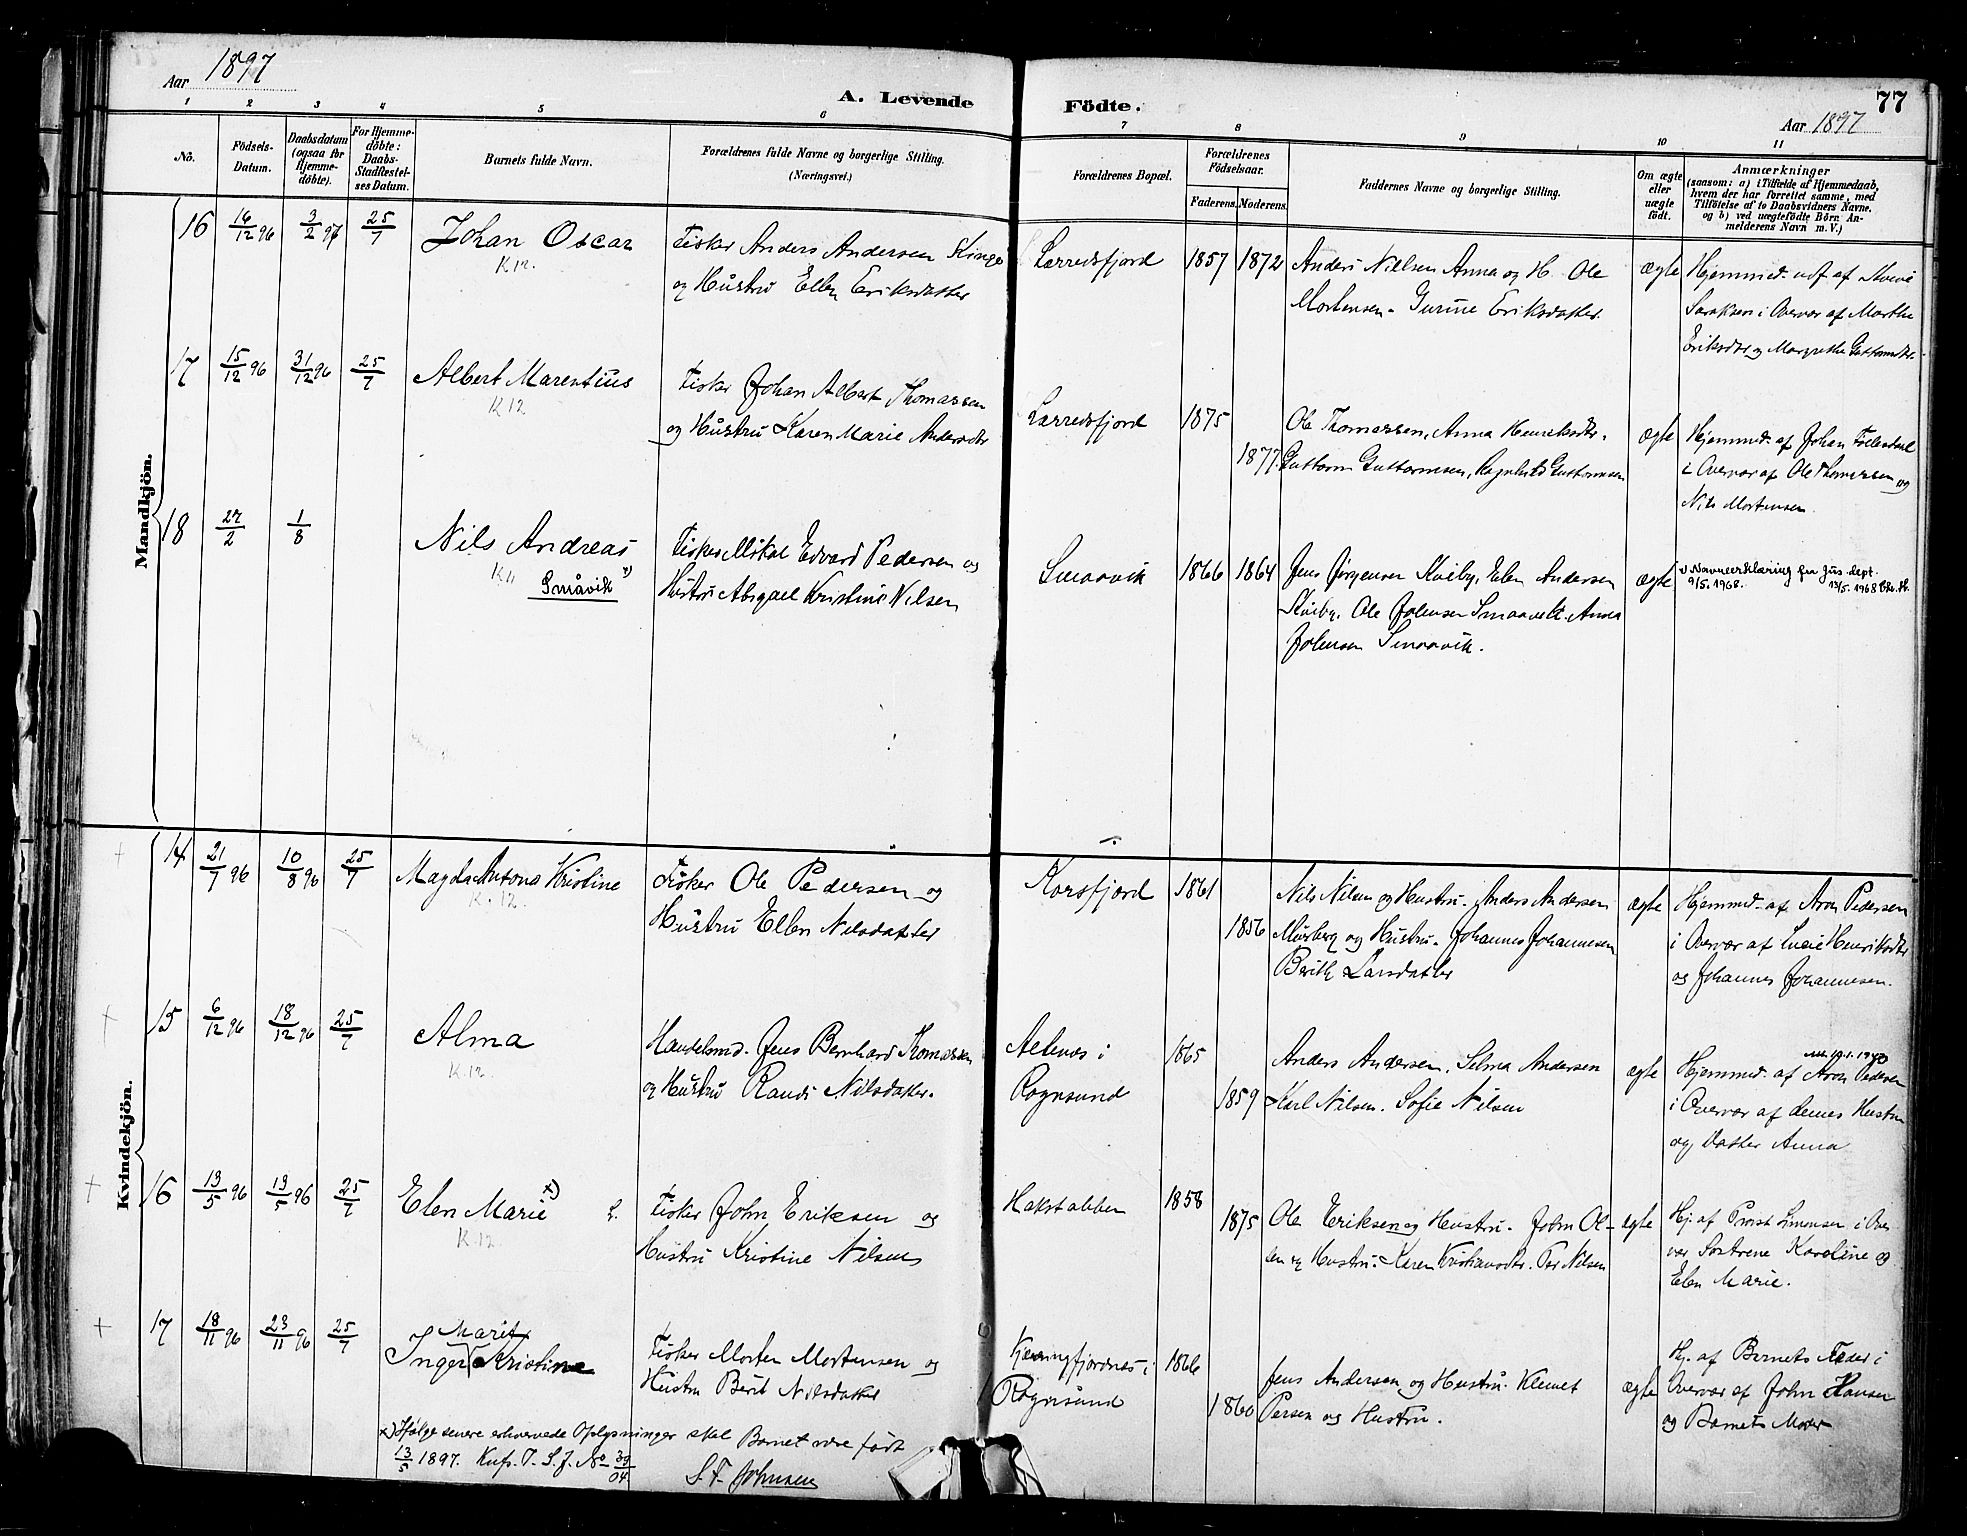 Aar 1897
A. Levende
Födte.
77
Aar 1897
1 2 3 4 5 6 7 8 9 10 11
No.
Födsels-
Datum.
Daabsdatum
(ogsaa for
Hjemme-
döbte).
For Hjemme-
döbte:
Daabs-
Stadfæstel-
ses Datum.
Barnets fulde Navn.
Forældrenes fulde Navne og borgerlige Stilling.
(Næringsvei.)
Forældrenes Bopæl.
Forældrenes
Födselsaar.
Faderens. Moderens.
Faddernes Navne og borgerlige Stilling.
Om ægte
eller
uægte
födt.
Anmærkninger
(saasom: a) i Tilfælde af Hjemmedaab,
hvem der har forrettet samme, med
Tilföielse af to Daabsvidners Navne,
og b) ved uægtefödte Börn An-
melderens Navn m. V.)
Mandkjön.
16 16/12 96 3/2 97 25/7 Johan Oscar
K 12.
Fisker Anders Andersen
og Hustru Ellen Eriksdatter
Lerredsfjord 1857 1872
Anders Nielsen Anna og H. Ole
Mortensen - Gurine Eriksdatter.
ægte
Hjemmed. udf. af
i Overvær af Marthe
Eriksdtr og Margrethe
17 15/12 96 31/12 96 25/7 Albert Marentius
K 12
Fisker Johan Albert Thomassen
og Hustru Karen Marie Andersdtr
Lerredsfjord 1875
1877.
Ole Thomassen, Anna Henriksdtr.
Guttorm Guttormsen, Ragnhild Guttormsen
ægte
Hjemmed. af Johan
i Overvær af Ole Thomassen og
Nils Mortensen.
18 27/2 1/8 Nils Andreas
K 11 Småvik x)
Fisker Mikal Edvard Pedersen og
Hustru Abigael Kristine Nilsen
Smaavik 1866 1864
Jens Jørgensen Kviby, Elen Andersen
Kviby. Ole Johnsen Smaavik. Anna
Johnsen Smaavik.
ægte
x) Navneerklæring fra Jus. dept.
9/5. 1968. 13/5. 1968
Kvindekjön.
14 21/7 96 10/8 96 25/7 Magda Antona Kristine
K. 12.
Fisker Ole Pedersen og
Hustru Ellen Nilsdatter
Korsfjord 1861
1856
Nils Nilsen og Hustru. Anders Andersen
Murberg og Hustru. Johannes Johannesen
Berith Larsdatter
ægte
Hjemmed. af Aron Pedersen
i Overvær af Lucie Henriksdtr
og Johannes Johannesen.
15 6/12 96 18/12 96 25/7 Alma
K. 12.
Handelsmd. Jens Bernhard Thomassen
og Hustru Randi Nilsdatter.
i
Rognsund
1865
1859
Anders Andersen, Selma Andersen
Karl Nilsen. Sofie Nilsen
ægte
19.1.1940
Hjemmed. af Aron Pedersen
i Overvær af dennes Hustru
og Datter Anna
16 13/5 96 13/5 96 25/7 Elen Marie x)
K. 12.
Fisker John Eriksen og
Hustru Kristine Nilsen
Hakstabben 1858
1875
Ole Eriksen og Hustru. John Ol-
sen og Hustru. Karen Kristiansdtr. Per Nilsen
ægte
Hj. af Provst Simonsen i Over
vær Søstrene Karoline og
Elen Marie.
17 18/11 96 23/11 96 25/7 Inger Marit Kristine
Fisker Morten Mortensen og
Hustru Berit Nilsdatter
Kjæringfjordnæs i
Rognsund
1866
1860
Jens Andersen og Hustru. Klemet
Persen og Hustru.
ægte
Hj. af Barnets Fader i
Overvær af John Hansen
og Barnets Moder
x) Ifølge senere erhvervede Oplysninger skal Barnet være født
13/5 1897. Knfr. I. S. J. No 39/04.
S. F. Johnsen